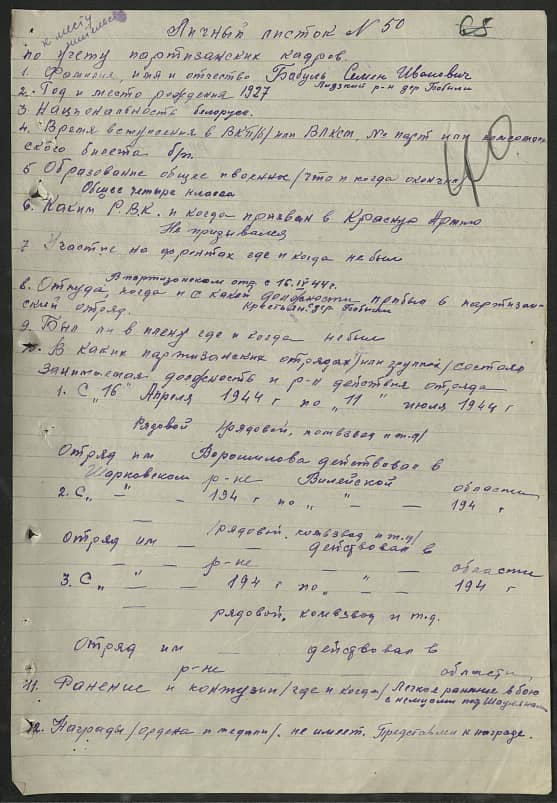 к месту жительства
Личный листок N 50
68
по учету партизанских кадров.
1. Фамилия, имя и отчество Бабуль Семен Иванович
2. Год и место рождения 1927 Лидский р-н дер Бобыли
3. Национальность белорус.
4. Время вступления в ВКП/б/ или ВЛКСМ, № парт или комсомоль
ского билета б/п.
5 Образование общее и военное /что и когда окончил/
Общее четыре класса
6. Каким Р.В.К. и когда призван в Красную Армию
Не призывался
7. Участие на фронтах где и когда не был
В партизанском отр. с 16.IV 44 г.
8. Откуда, когда и с какой должности прибыл в партизан
ский отряд. Крестьянин дер Бобыли
9. Был ли в плену где и когда не был
10. В каких партизанских отрядах /или группах/ состоял
Занимаемая должность и р-н действия отряда
1. С "16" Апреля 1944 г по "11" июля 1944 г
Рядовой /рядовой, комвзвод и т.д/
Отряд им Ворошилова действовал в
р-не Вилейской области
2. С " — " — 194 г по " — " — 194 г
— /рядовой, комвзвод и т.д/
Отряд им — — действовал в
— р-не — области
3. С " — " — 194 г по " — " — 194 г
— рядовой, комвзвод и т.д.
Отряд им — действовал в
р-не области,
11. Ранение и контузии /где и когда/ Легкое ранение в бою
с немцами под
12. Награды /ордена и медали/. не имеет. Представлен к награде.